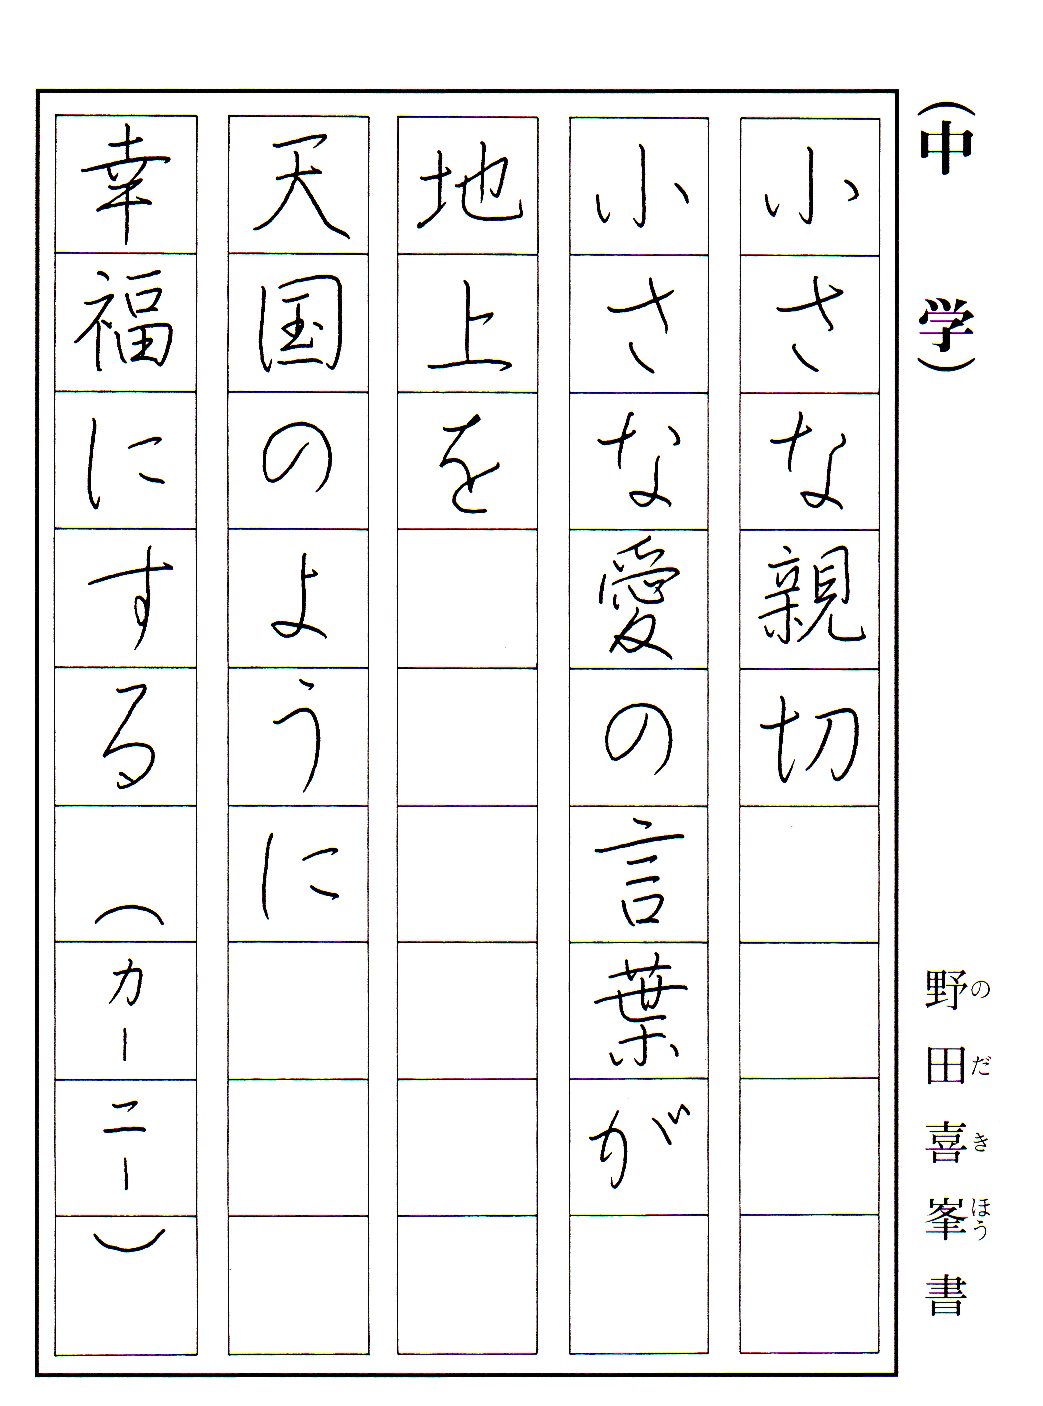 (中学)
野田喜峯書
のだきほう
小さな親切
小さな愛の言葉が
地上を
天国のように
幸福にする(カーニー)